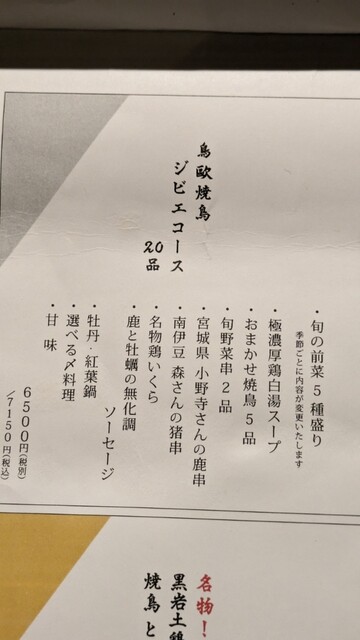 鳥欧焼鳥
ジビエコース
20品
・旬の前菜 5種盛り
季節ごとに内容が変更いたします
・極濃厚鶏白湯スープ
・おまかせ焼鳥 5品
・旬野菜串 2品
・宮城県 小野寺さんの鹿串
・南伊豆 森さんの猪串
・名物鶏いくら
・鹿と牡蠣の無化調
ソーセージ
・牡丹・紅葉鍋
・選べる〆料理
・甘味
6500円(税別)
/7150円(税込)
名物!
黒岩土鶏
焼鳥と